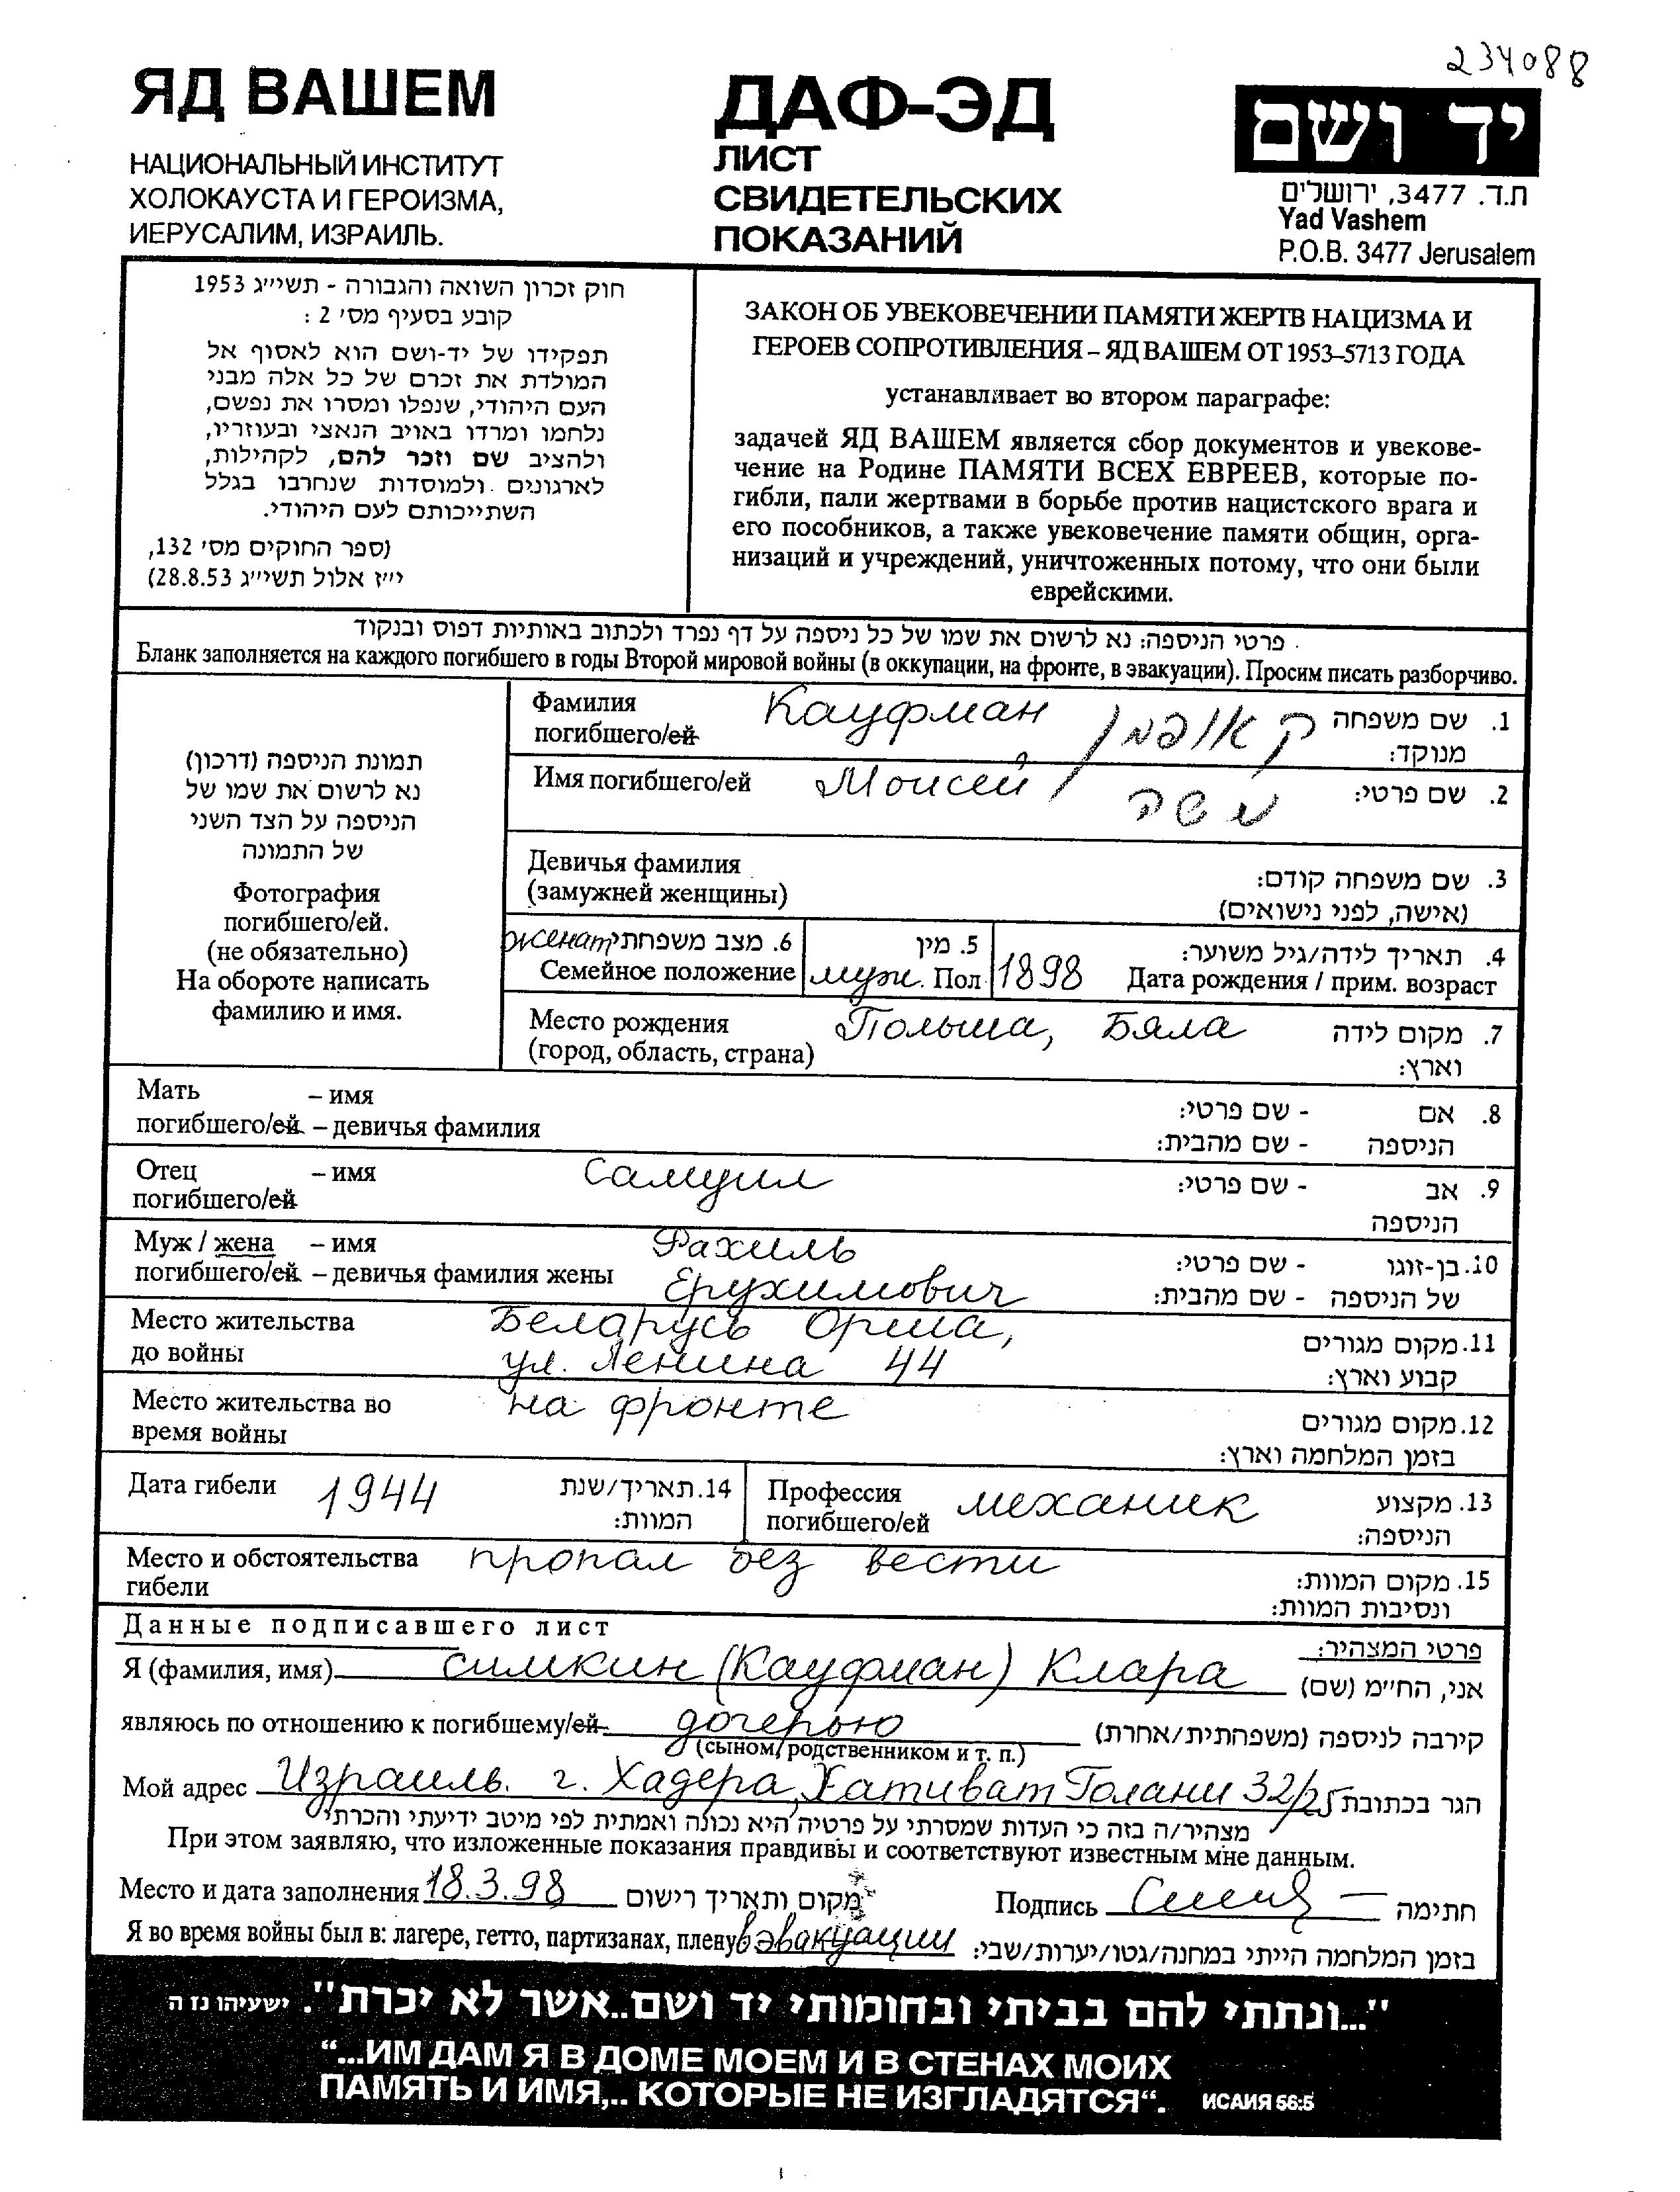 234088
ЯД ВАШЕМ
НАЦИОНАЛЬНЫЙ ИНСТИТУТ
ХОЛОКАУСТА И ГЕРОИЗМА,
ИЕРУСАЛИМ, ИЗРАИЛЬ.
ДАФ-ЭД
ЛИСТ
СВИДЕТЕЛЬСКИХ
ПОКАЗАНИЙ
יד ושם
ת.ד. 3477, ירושלים
Yad Vashem
P.O.B. 3477 Jerusalem
חוק זכרון השואה והגבורה - תשי״ג 1953
קובע בסעיף מס׳ 2 :
תפקידו של יד-ושם הוא לאסוף אל
המולדת את זכרם של כל אלה מבני
העם היהודי, שנפלו ומסרו את נפשם,
נלחמו ומרדו באויב הנאצי ובעוזריו,
ולהציב שם וזכר להם, לקהילות,
לארגונים ולמוסדות שנחרבו בגלל
השתייכותם לעם היהודי.
(ספר החוקים מס׳ 132,
י״ז אלול תשי״ג 28.8.53)
ЗАКОН ОБ УВЕКОВЕЧЕНИИ ПАМЯТИ ЖЕРТВ НАЦИЗМА И
ГЕРОЕВ СОПРОТИВЛЕНИЯ – ЯД ВАШЕМ ОТ 1953–5713 ГОДА
устанавливает во втором параграфе:
задачей ЯД ВАШЕМ является сбор документов и увекове-
чение на Родине ПАМЯТИ ВСЕХ ЕВРЕЕВ, которые по-
гибли, пали жертвами в борьбе против нацистского врага и
его пособников, а также увековечение памяти общин, орга-
низаций и учреждений, уничтоженных потому, что они были
еврейскими.
פרטי הניספה: נא לרשום את שמו של כל ניספה על דף נפרד ולכתוב באותיות דפוס ובנקוד
Бланк заполняется на каждого погибшего в годы Второй мировой войны (в оккупации, на фронте, в эвакуации). Просим писать разборчиво.
תמונת הניספה (דרכון)
נא לרשום את שמו של
הניספה על הצד השני
של התמונה
Фотография
погибшего/ей.
(не обязательно)
На обороте написать
фамилию и имя.
Фамилия Кауфман קאופמן 1. שם משפחה
погибшего/ей מנוקד:
Имя погибшего/ей Моисей משה 2. שם פרטי:
Девичья фамилия 3. שם משפחה קודם:
(замужней женщины) (אישה, לפני נישואים)
женат 6. מצב משפחתי 5. מין 4. תאריך לידה/גיל משוער:
Семейное положение муж. Пол 1898 Дата рождения / прим. возраст
Место рождения Польша, Бяла 7. מקום לידה
(город, область, страна) וארץ:
Мать – имя 8. אם - שם פרטי:
погибшего/ей – девичья фамилия הניספה - שם מהבית:
Отец – имя Самуил 9. אב - שם פרטי:
погибшего/ей הניספה
Муж / жена – имя Рахиль 10. בן-זוגו - שם פרטי:
погибшего/ей – девичья фамилия жены Ерухимович של הניספה - שם מהבית:
Место жительства Беларусь Орша, 11. מקום מגורים
до войны ул. Ленина 44 קבוע וארץ:
Место жительства во на фронте 12. מקום מגורים
время войны בזמן המלחמה וארץ:
Дата гибели 1944 14. תאריך/שנת Профессия механик 13. מקצוע
המוות: погибшего/ей הניספה:
Место и обстоятельства пропал без вести 15. מקום המוות:
гибели ונסיבות המוות:
Данные подписавшего лист פרטי המצהיר:
Я (фамилия, имя) Симкин (Кауфман) Клара אני, הח״מ (שם)
являюсь по отношению к погибшему/ей дочерью קירבה לניספה (משפחתית/אחרת)
(сыном/родственником и т. п.)
Мой адрес Израиль. г. Хадера, Хативат Голани 32/25 הגר בכתובת
מצהיר/ה בזה כי העדות שמסרתי על פרטיה היא נכונה ואמתית לפי מיטב ידיעתי והכרתי
При этом заявляю, что изложенные показания правдивы и соответствуют известным мне данным.
Место и дата заполнения 18.3.98 מקום ותאריך רישום Подпись חתימה
Я во время войны был в: лагере, гетто, партизанах, плену в эвакуации בזמן המלחמה הייתי במחנה/גטו/יערות/שבי:
"...ונתתי להם בביתי ובחומותי יד ושם..אשר לא יכרת". ישעיהו נו ה
“...ИМ ДАМ Я В ДОМЕ МОЕМ И В СТЕНАХ МОИХ
ПАМЯТЬ И ИМЯ,.. КОТОРЫЕ НЕ ИЗГЛАДЯТСЯ“. ИСАИЯ 56:5